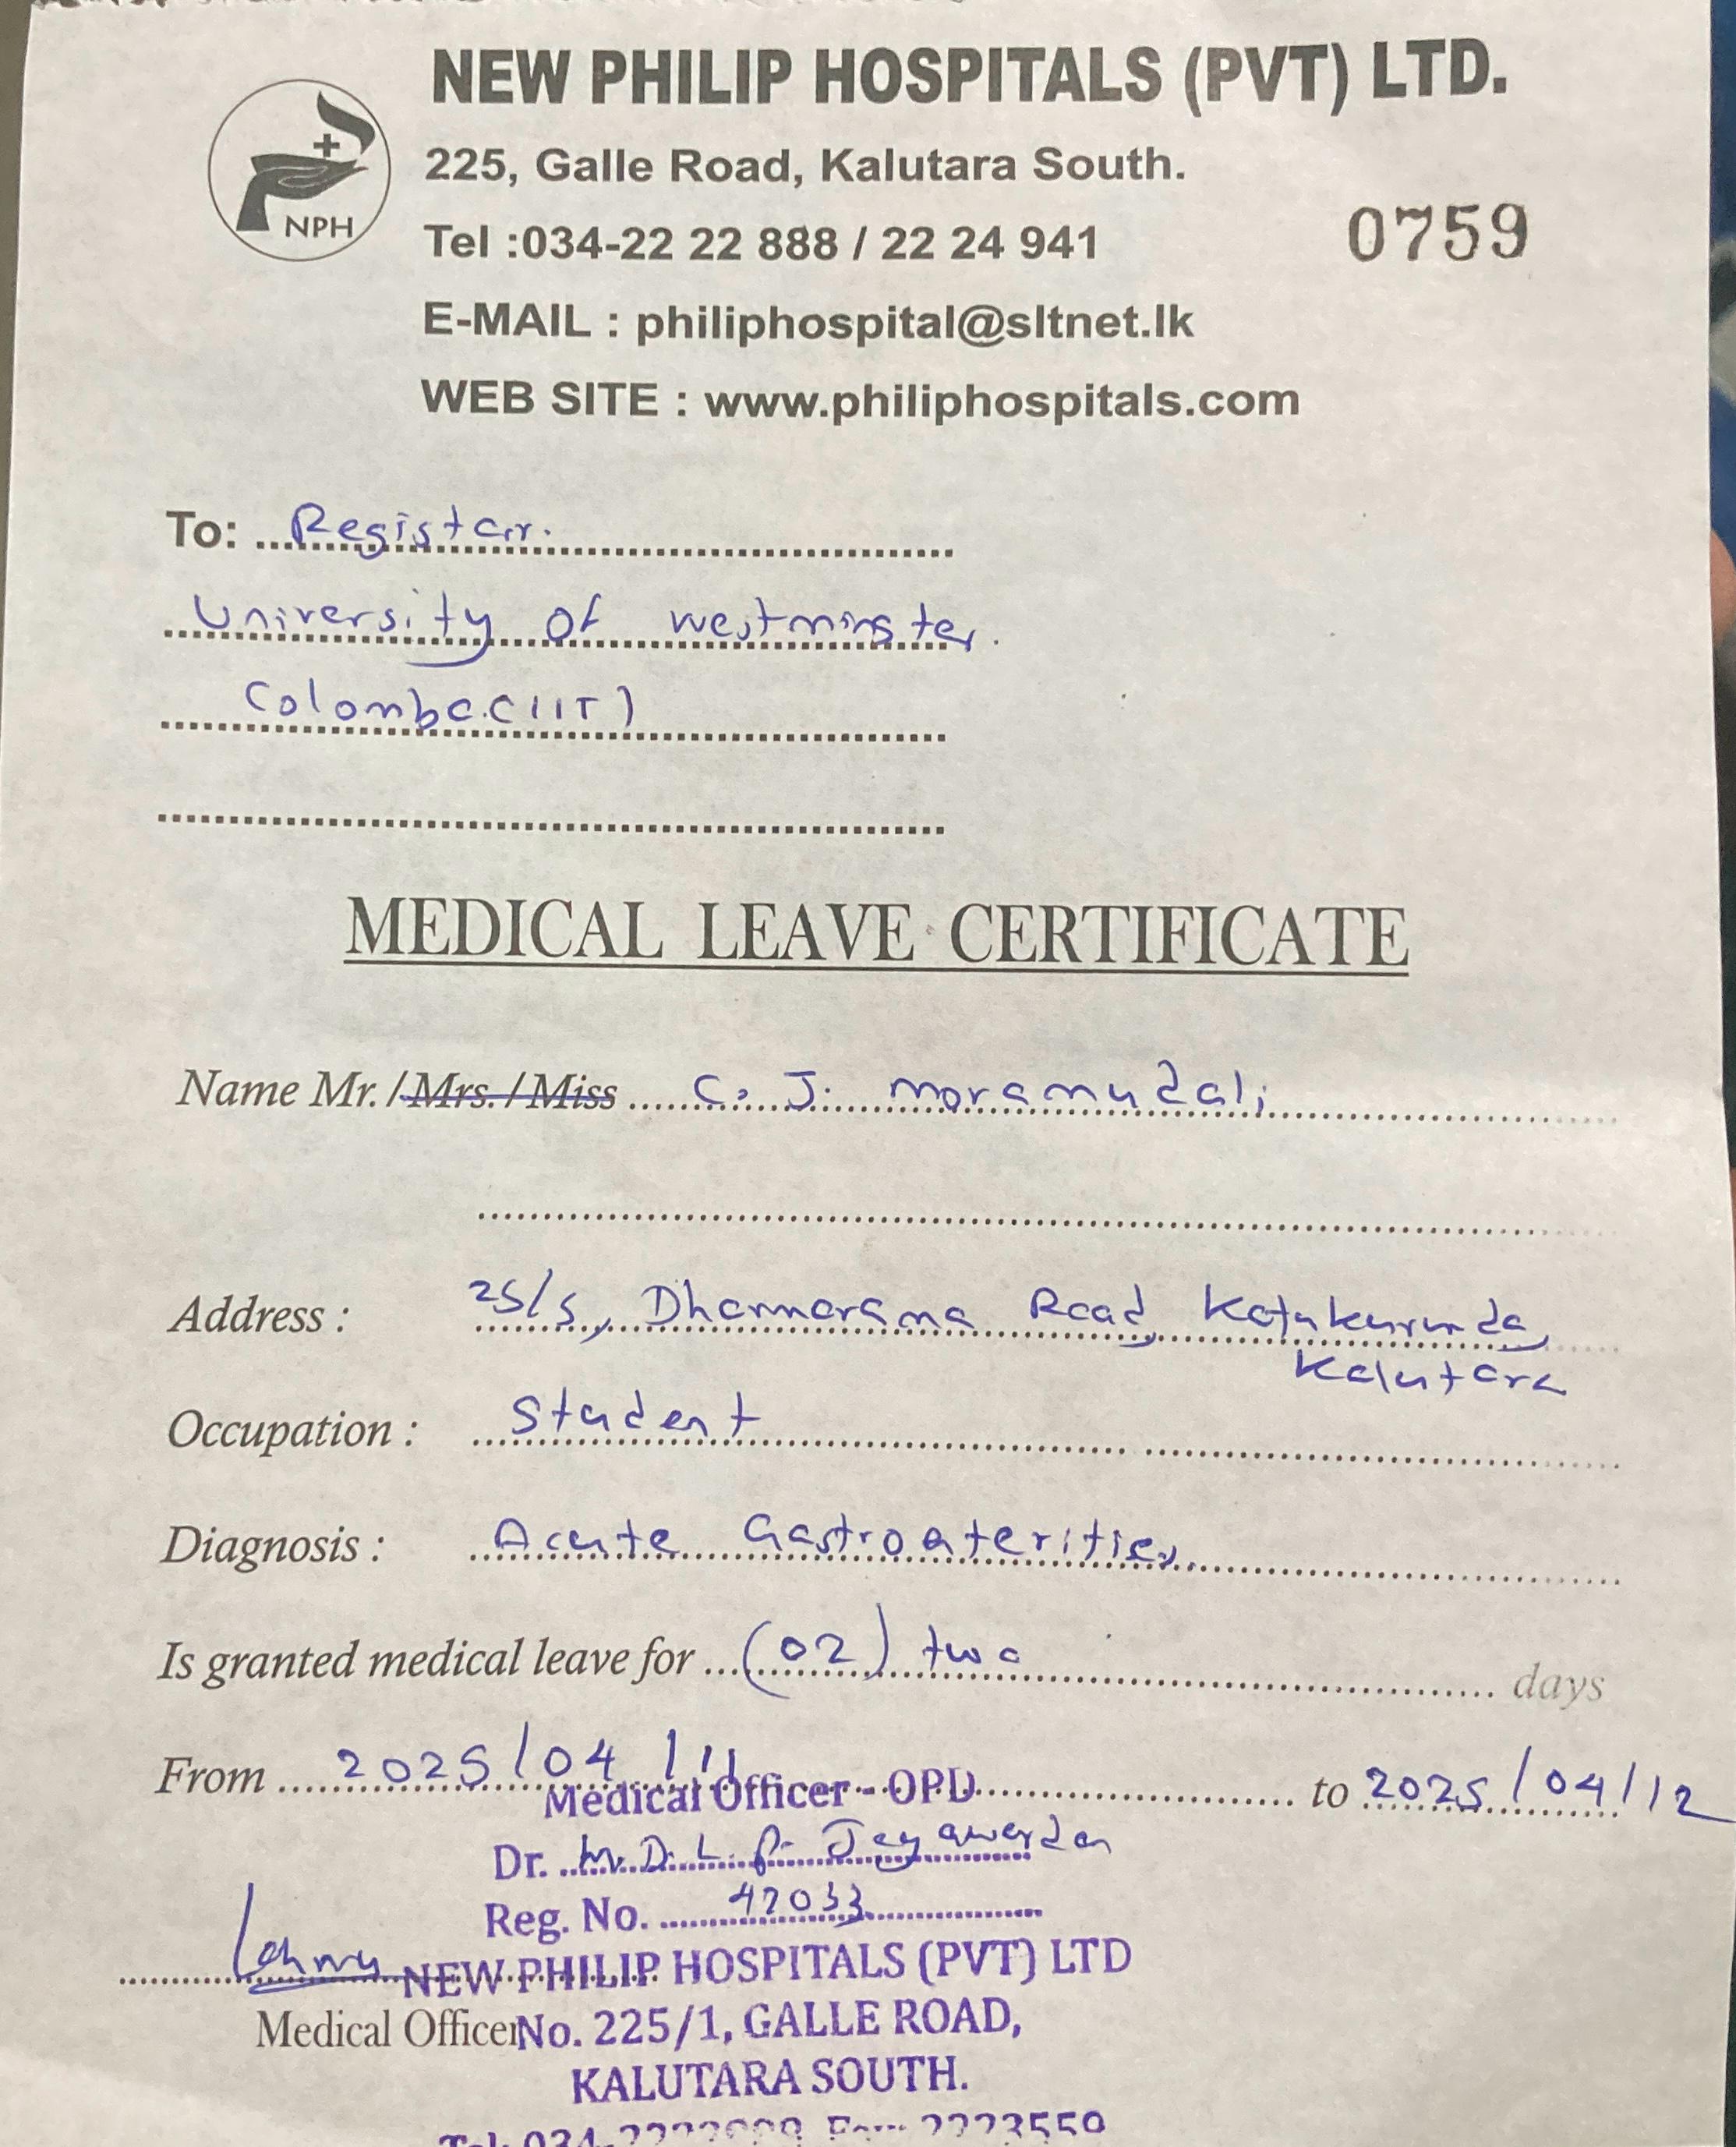 NEW PHILIP HOSPITALS (PVT) LTD.
NPH
225, Galle Road, Kalutara South.
Tel :034-22 22 888 / 22 24 941
0759
E-MAIL : philiphospital@sltnet.lk
WEB SITE : www.philiphospitals.com
To: Registar.
University of westminster.
Colombo.(IIT)
MEDICAL LEAVE CERTIFICATE
Name Mr. / Mrs. / Miss C. J. Moramudali
Address : 25/5, Dhammarama Road, Katukurunda,
Kalutara
Occupation : Student
Diagnosis : Acute
Is granted medical leave for (02) two days
From 2025/04/11 to 2025/04/12
Medical Officer - OPD
Dr. D. L. P.
Reg. No. 42033
NEW PHILIP HOSPITALS (PVT) LTD
Medical Officer
No. 225/1, GALLE ROAD,
KALUTARA SOUTH.